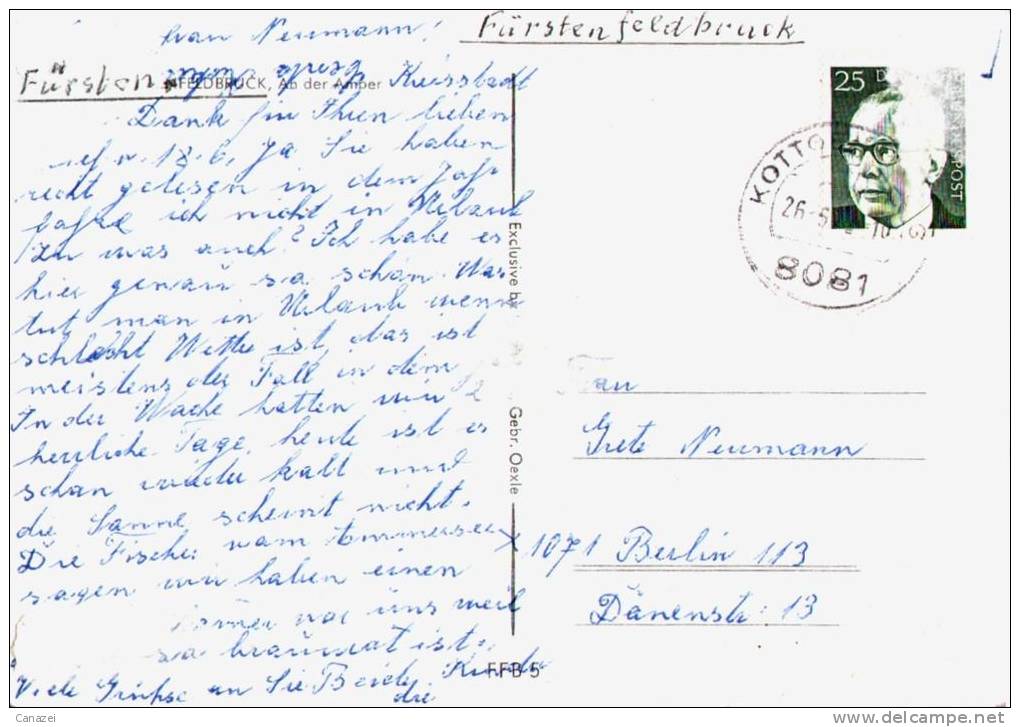 Fürstenfeldbruck
Frau Neumann!
Fürsten
FELDBRUCK, An der Amper
Dank für Ihren lieben
Brief v. 18.6, Ja Sie haben
recht gelesen in dem Jahr
fahre ich nicht in Urlaub
zu was auch? Ich habe es
hier genau so schön. Was
tut man in Urlaub wenn
schlecht Wetter ist, das ist
meistens der Fall in dem
In der Woche hatten wir 2
herrliche Tage, heute ist es
schon wieder kalt und
die Sonne scheint nicht.
Die Fischer vom Ammersee
sagen wir haben einen
weil
so ist.
Viele Grüße an Sie Beide
die
Exclusive by
Gebr. Oexle
FFB 5
25
POST
KOTTG
26.
8081
Frau
Grete Neumann
1071 Berlin 113
Dänenstr. 13
Canazei
delcampe.net